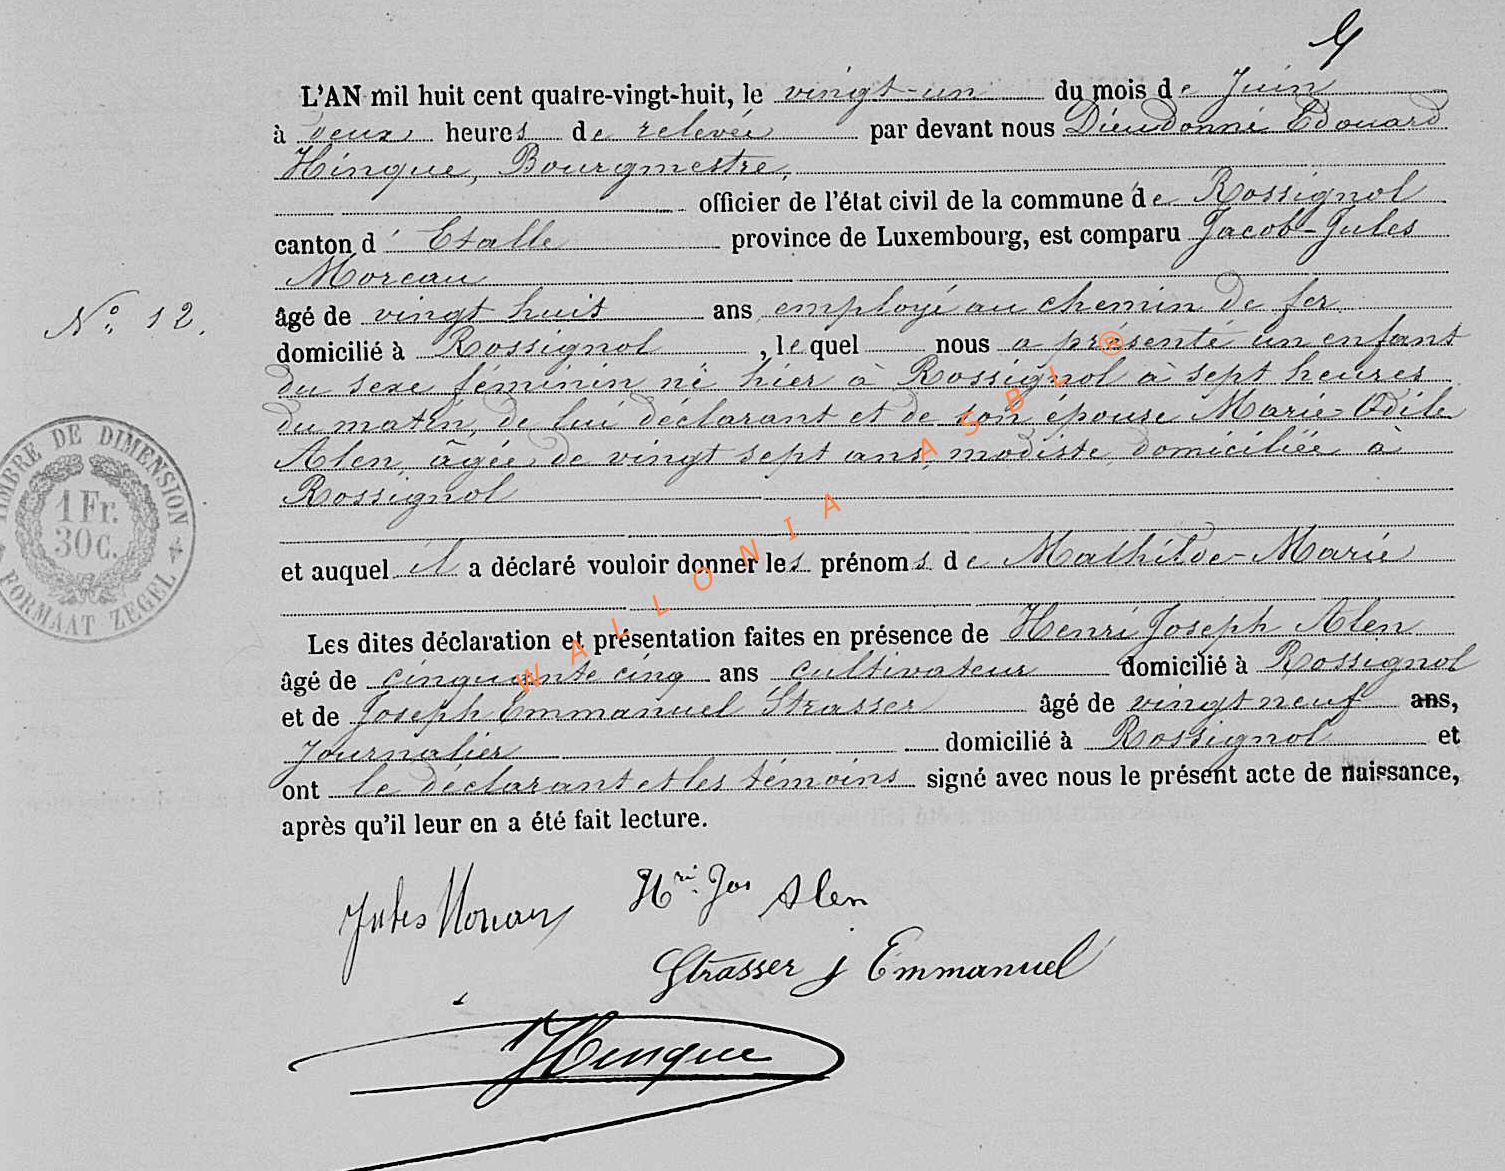 L'AN mil huit cent quatre-vingt-huit, le vingt-un du mois de Juin
à deux heures de relevée par devant nous Dieudonné Edouard
Hinque, Bourgmestre,
officier de l'état civil de la commune de Rossignol
canton d'Etalle province de Luxembourg, est comparu Jacob-Jules
Moreau
âgé de vingt huit ans employé au chemin de fer
domicilié à Rossignol, lequel nous a présenté un enfant
du sexe féminin né hier à Rossignol à sept heures
du matin, de lui déclarant et de son épouse Marie-Odile
Alen, âgée de vingt sept ans, modiste, domiciliée à
Rossignol
et auquel il a déclaré vouloir donner les prénoms de Mathilde-Marie
Les dites déclaration et présentation faites en présence de Henri Joseph Alen
âgé de cinquante cinq ans cultivateur domicilié à Rossignol
et de Joseph Emmanuel Strasser âgé de vingt neuf ans,
journalier domicilié à Rossignol et
ont le déclarant et les témoins signé avec nous le présent acte de naissance,
après qu'il leur en a été fait lecture.
N° 12.
TIMBRE DE DIMENSION
1 Fr.
30 C.
FORMAAT ZEGEL
WALLONIA ASBL ®
Jules Moreau
Hri Jos Alen
Strasser j Emmanuel
Hinque